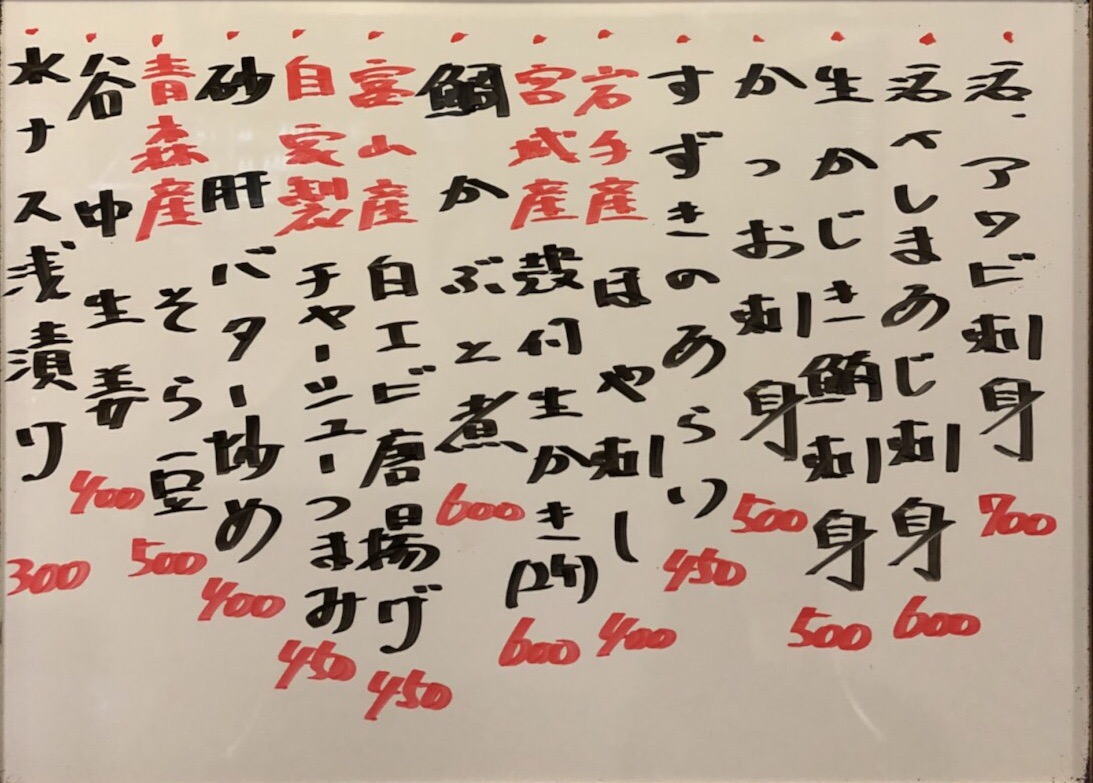 活アワビ刺身 700
活しまあじ刺身 600
生かじき鮪刺身 500
かつお刺身 500
すずきのあらい 450
岩手産 ほや刺し 400
宮城産 殻付生かき(2ケ) 600
鯛かぶと煮 600
富山産 白エビ唐揚げ 450
自家製 チャーシューつまみ 450
砂肝バター炒め 400
青森産 そら豆 500
谷中生姜 400
水ナス浅漬り 300